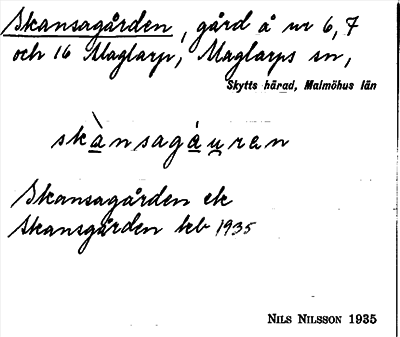 Skansagården, gård å nr 6, 7
och 16 Maglarp, Maglarps sn,
Skytts härad, Malmöhus län
skànsagáuren
Skansagården ek
Skansgården kb 1935
NILS NILSSON 1935